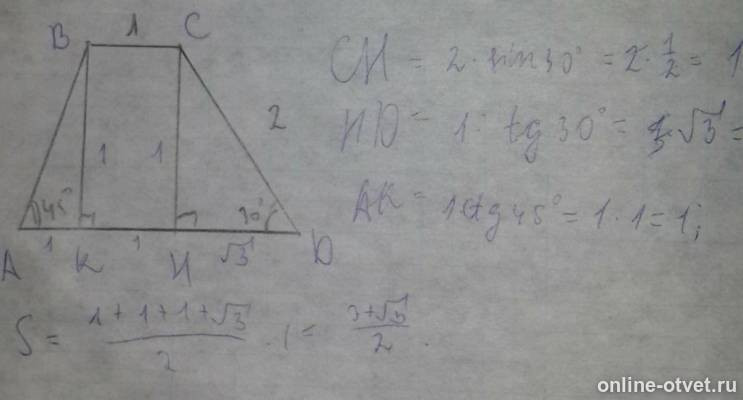 B 1 C
2
1 1
45° 30°
A 1 K 1 H √3 D
CH = 2 · sin 30° = 2 · 1/2 = 1
HD = 1 · tg 30° = · √3 =
AK = 1 · tg 45° = 1 · 1 = 1;
S = (1 + 1 + 1 + √3)/2 · 1 = (3 + √3)/2 .
online-otvet.ru